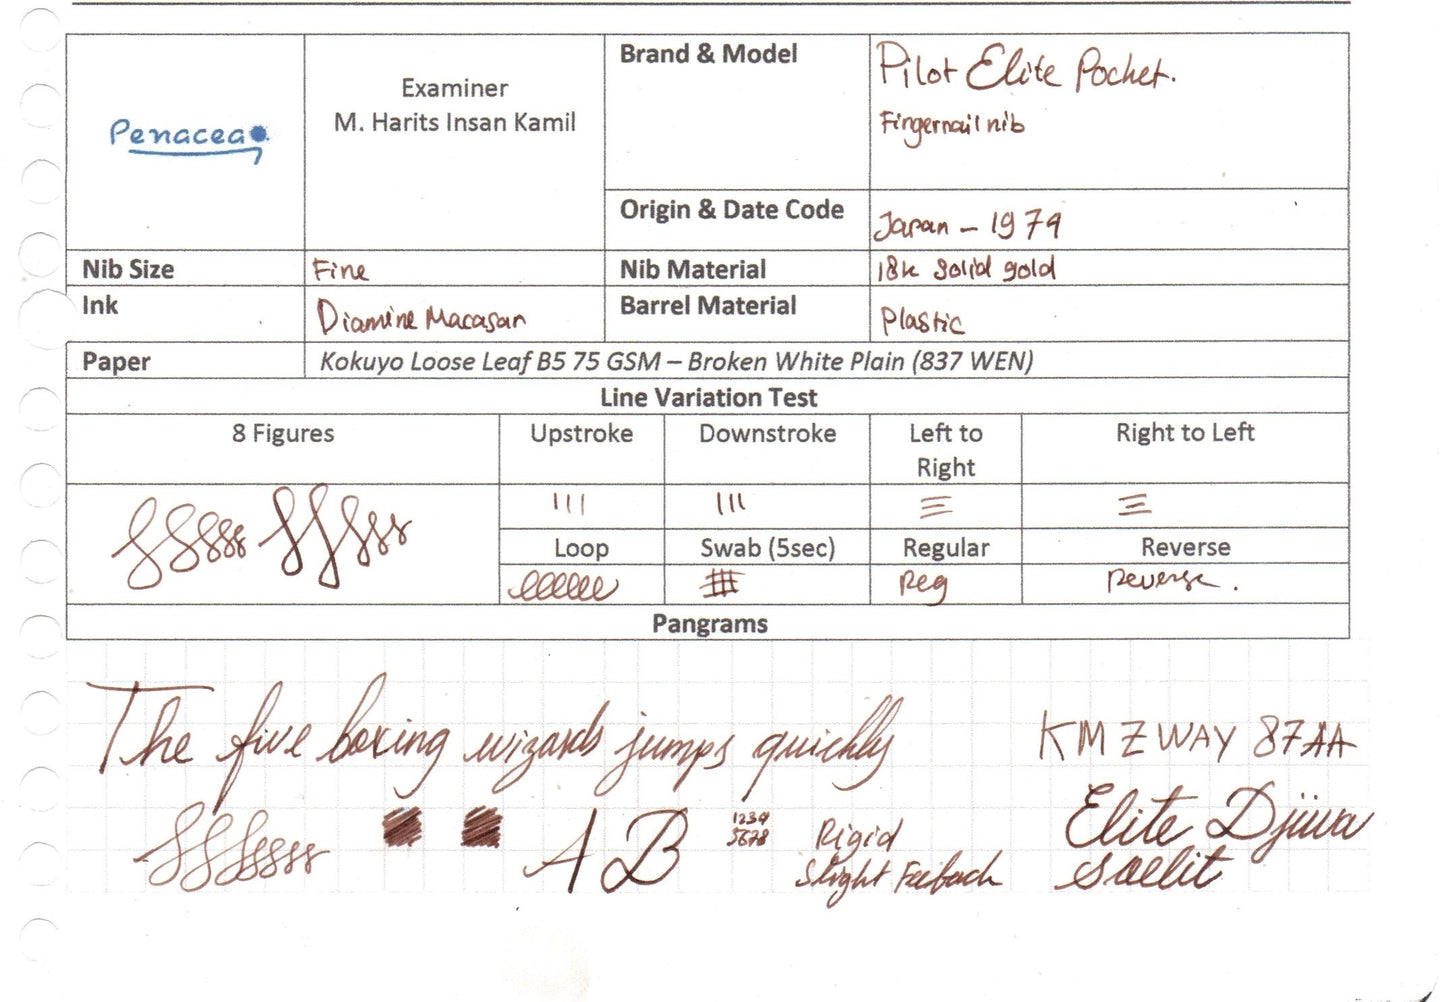 Penacea
Examiner
M. Harits Insan Kamil
Brand & Model
Pilot Elite Pocket.
Fingernail nib
Origin & Date Code
Japan - 1979
Nib Size
Fine
Nib Material
18k solid gold
Ink
Diamine Macasar
Barrel Material
Plastic
Paper
Kokuyo Loose Leaf B5 75 GSM – Broken White Plain (837 WEN)
Line Variation Test
8 Figures
Upstroke
Downstroke
Left to
Right
Right to Left
Loop
Swab (5sec)
Regular
Reverse
Reg
Reverse.
Pangrams
The five boxing wizards jumps quickly
KMZWAY 87AA
A B
1234
5678
Rigid
Slight Feeback
Elite Djiwa